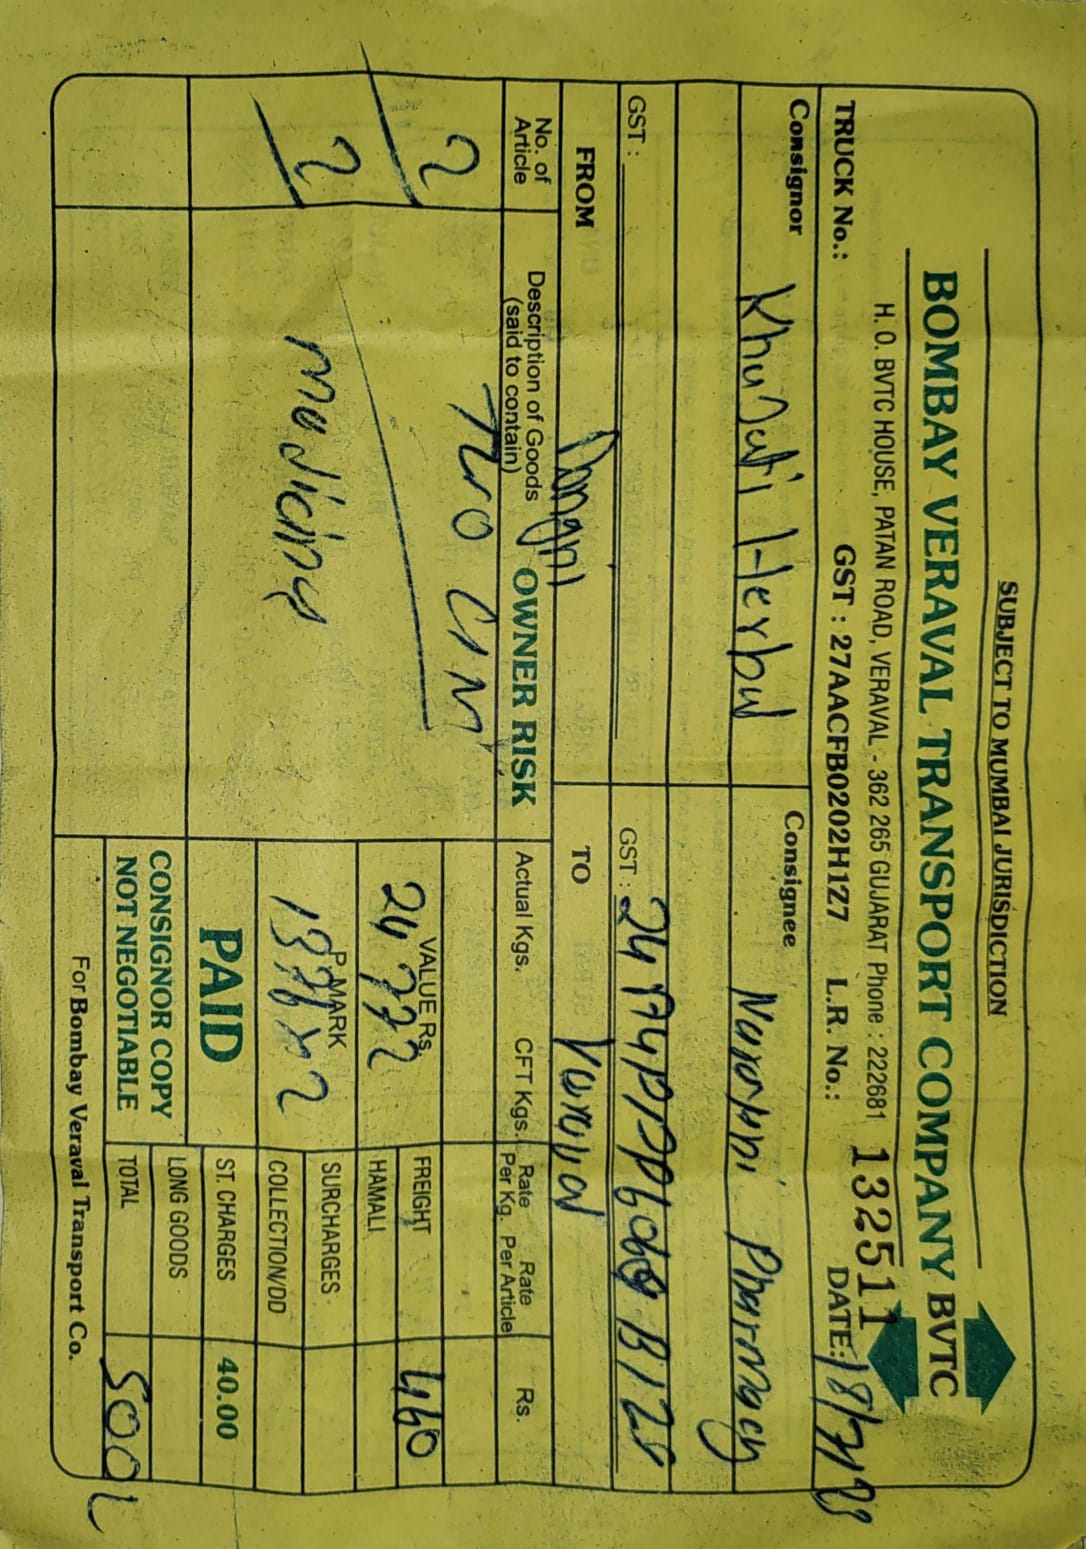 SUBJECT TO MUMBAI JURISDICTION
BOMBAY VERAVAL TRANSPORT COMPANY BVTC
H. O. BVTC HOUSE, PATAN ROAD, VERAVAL - 362 265 GUJARAT Phone : 222681
TRUCK No.: GST : 27AACFB0202H1Z7 L.R. No.: 132511 DATE:
Consignor Consignee
Herbal Pharmacy
GST : GST :
FROM TO
No. of Article Description of Goods (said to contain) OWNER RISK Actual Kgs. CFT Kgs. Rate Per Kg. Rate Per Article Rs.
2 Two
VALUE Rs. 2472 FREIGHT 460
HAMALI
2 P. MARK 1376x2 SURCHARGES
COLLECTION/DD
PAID ST. CHARGES 40.00
CONSIGNOR COPY LONG GOODS
NOT NEGOTIABLE TOTAL 500
For Bombay Veraval Transport Co.